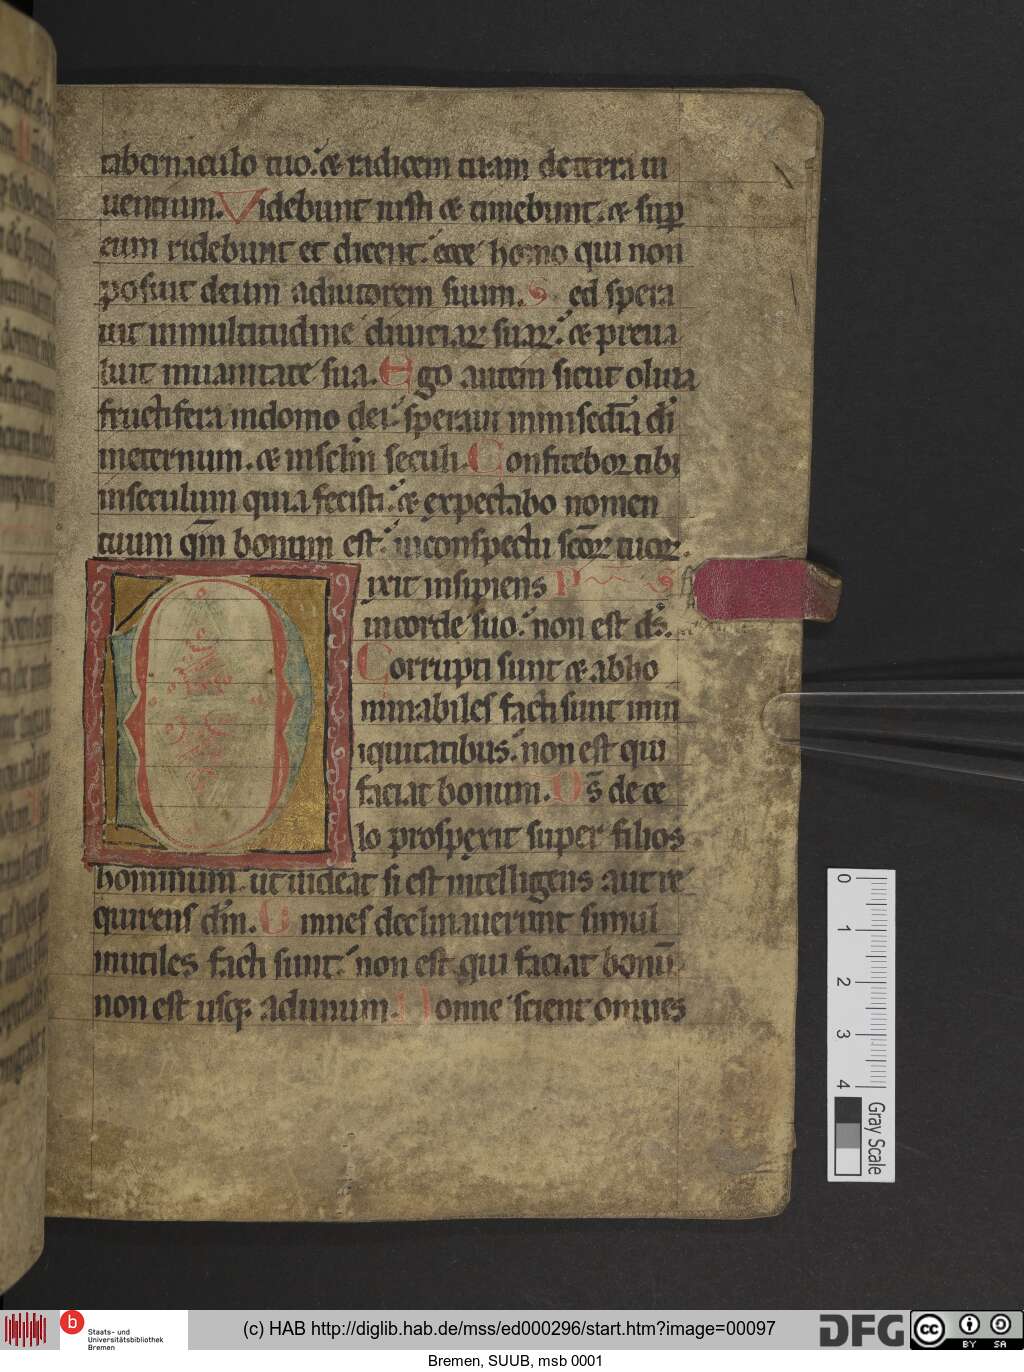 tabernaculo tuo. & radicem tuam deterra ui
uentium. Videbunt iusti & timebunt. & sup
eum ridebunt et dicent. ecce homo qui non
posuit deum adiutorem suum. Sed spera
uit inmultitudine diuiciaꝝ suaꝝ. & preua
luit inuanitate sua. Ego autem sicut oliua
fructifera indomo dei. speraui inmisedīa dī
ineternum. & insclm̄ seculi. Confitebor tibi
inseculum quia fecisti. & expectabo nomen
tuum qm̄ bonum est. inconspectu scōꝝ tuoꝝ.
Dixit insipiens P S
incorde suo. non est ds̄.
Corrupti sunt & abho
minabiles facti sunt inin
iquitatibus. non est qui
faciat bonum. Ds̄ dece
lo prospexit super filios
hominum. ut uideat si est intelligens aut re
quirens dm̄. Omnes declinauerunt simul
inutiles facti sunt. non est qui faciat bonū
non est usq; adunum. Nonne scient omnes
0
1
2
3
4
Gray Scale
b
Staats- und
Universitätsbibliothek
Bremen
(c) HAB http://diglib.hab.de/mss/ed000296/start.htm?image=00097
DFG
cc
BY SA
Bremen, SUUB, msb 0001